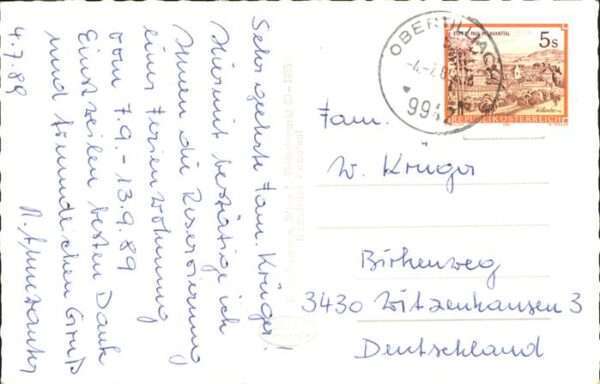 4.7.89
Sehr geehrte Fam. Krüger!
Hiermit bestätige ich
Ihnen die Reservierung
einer Ferienwohnung
vom 7.9. - 13.9.89
Einstweilen besten Dank
und freundlichen Gruß
OBERTILLIACH
5s
REPUBLIK ÖSTERREICH
Fam.
W. Krüger
Birkenweg
3430 Witzenhausen 3
Deutschland